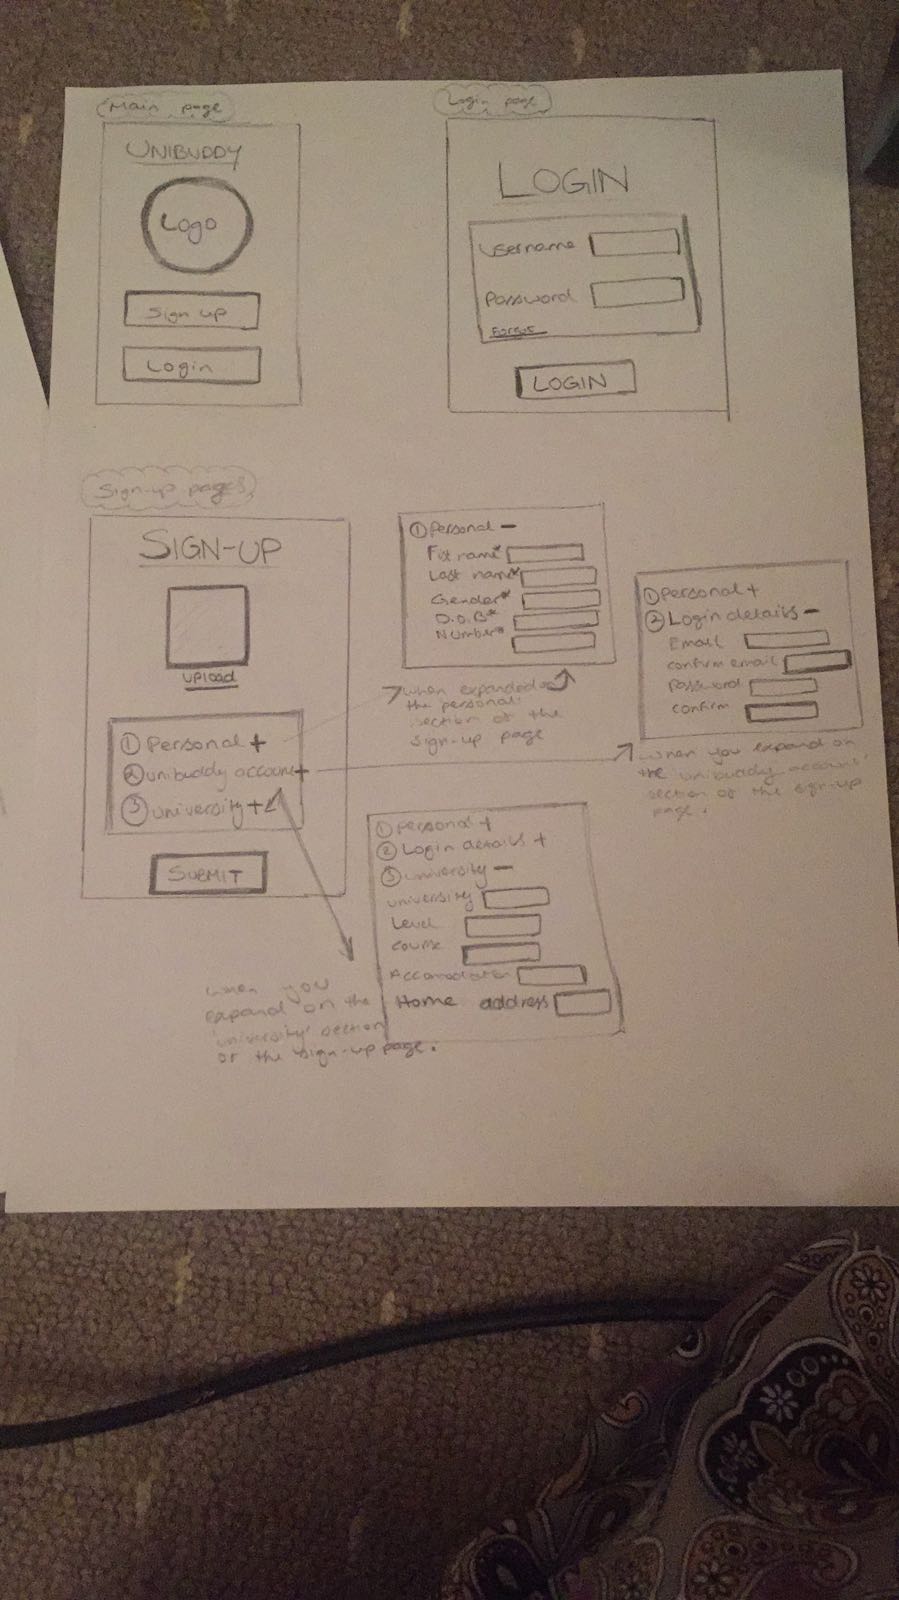 Main page
UNIBUDDY
Logo
Sign up
Login
Login page
LOGIN
Username
Password
Forgot
LOGIN
Sign-up pages
SIGN-UP
UPLOAD
① Personal +
② unibuddy account+
③ university +
SUBMIT
① Personal -
First name*
Last name*
Gender*
D.O.B*
Number*
when expanded on
the personal
section of the
sign-up page
① Personal +
② Login details -
Email
confirm email
Password
confirm
when you expand on
the 'unibuddy account'
section of the sign-up
page.
① Personal +
② Login details +
③ university -
university
Level
course
Accomodation
Home address
when you
expand on the
'university' section
of the sign-up page.